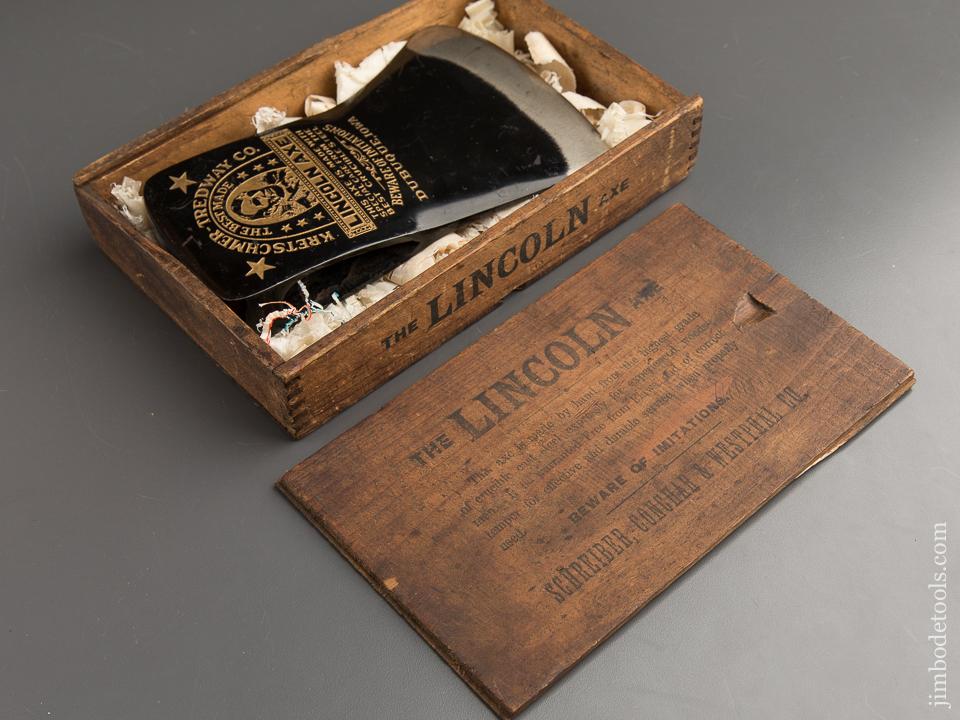 KRETSCHMER-TREDWAY CO.
THE BEST MADE
LINCOLN AXE
THIS AXE IS MADE WITH
CARE FROM THE
BEST CRUCIBLE STEEL
BEWARE OF IMITATIONS
DUBUQUE, IOWA
THE LINCOLN AXE
THE LINCOLN AXE
This axe is made by hand from the highest grade
of crucible axe steel expressly for experienced woodsmen.
It is guaranteed free from flaws and of correct
temper for effective and durable service when properly
used.
BEWARE OF IMITATIONS.
SCHREIBER, CONCHAR & WESTPHAL CO.
jimbodetools.com